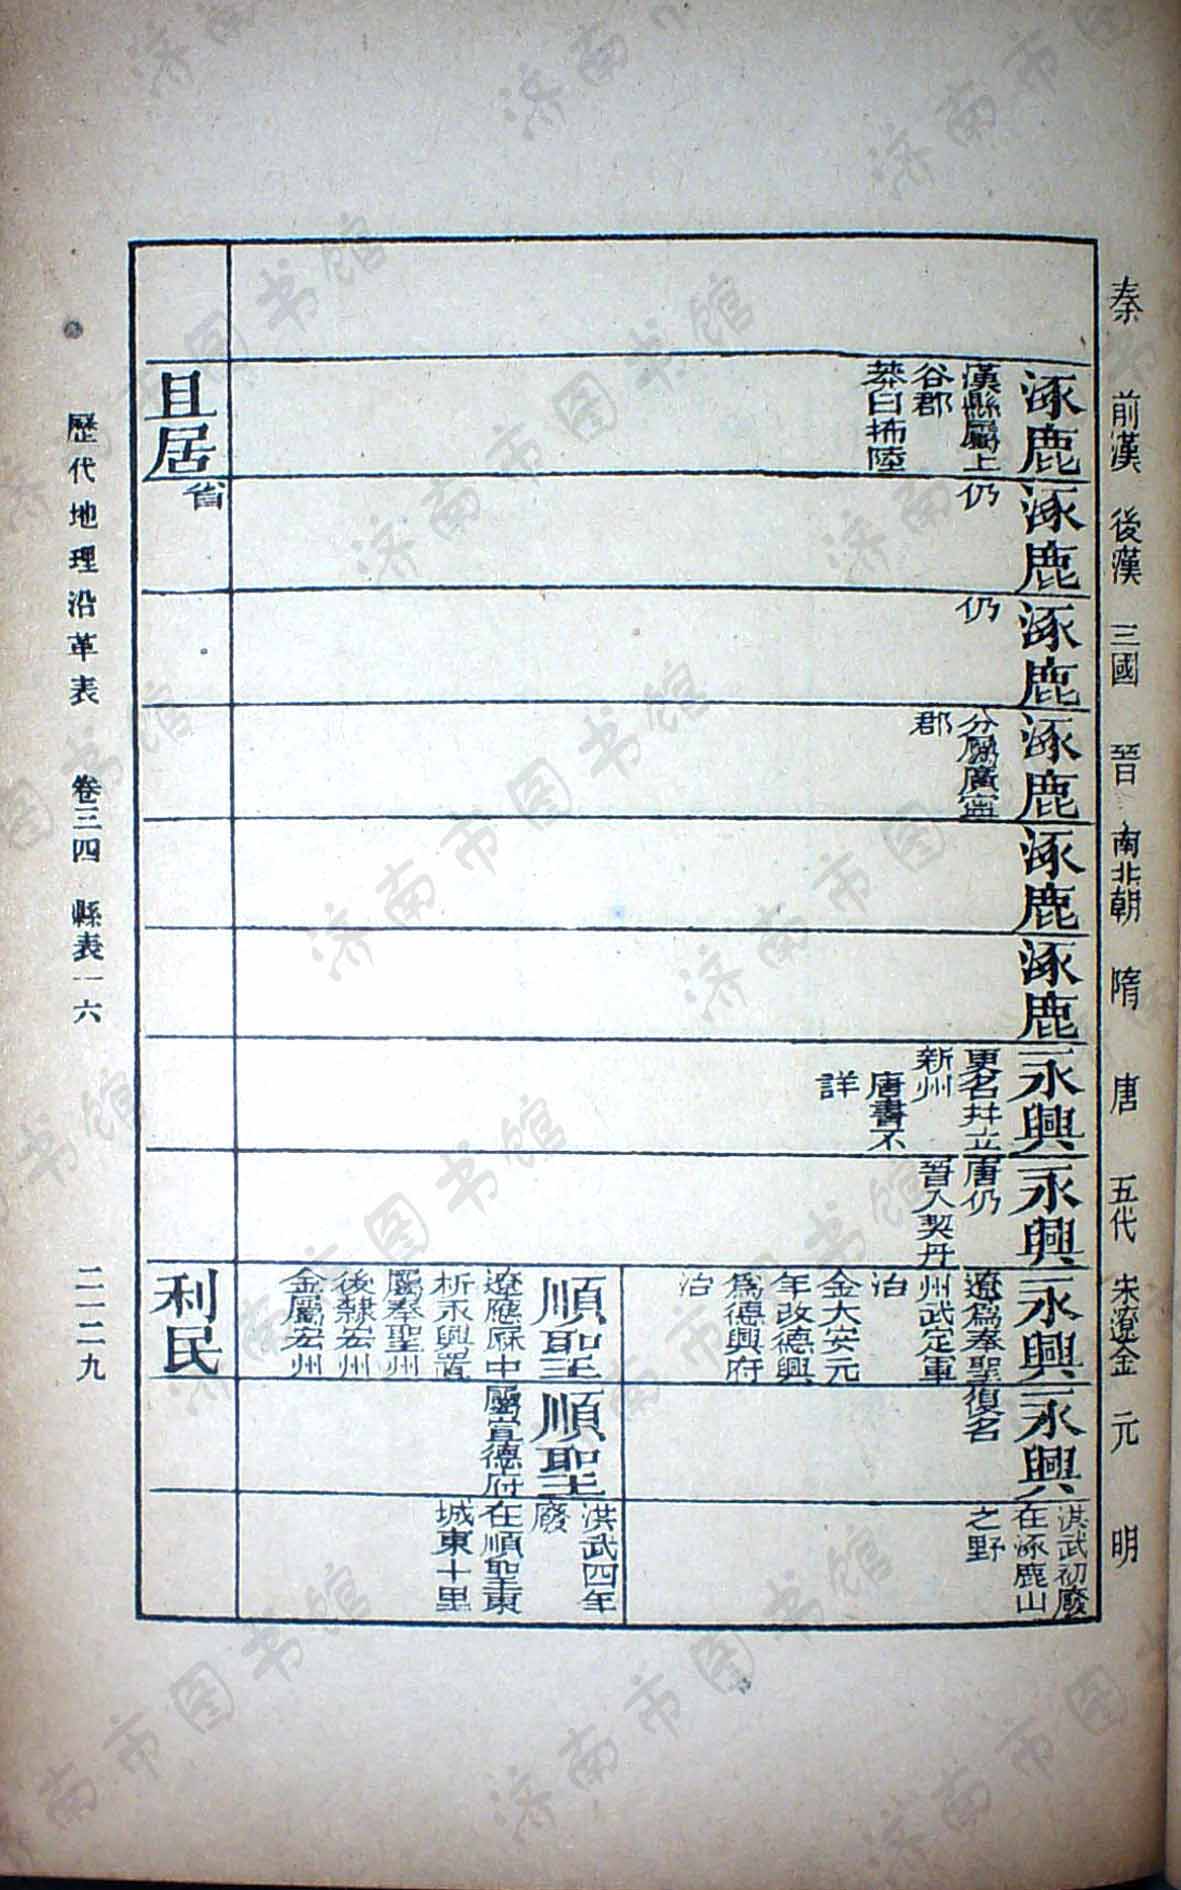 秦
前漢
後漢
三國
晉
南北朝
隋
唐
五代
宋遼金
元
明
涿鹿
漢縣屬上
谷郡
莽曰抪陸
涿鹿
仍
涿鹿
仍
涿鹿
分屬廣寧
郡
涿鹿
涿鹿
永興
更名幷立
新州
唐書不
詳
永興
唐仍
晉入契丹
永興
遼爲奉聖
州武定軍
治
金大安元
年改德興
爲德興府
治
永興
復名
洪武初廢
在涿鹿山
之野
順聖
遼應厤中
析永興置
屬奉聖州
後隸宏州
金屬宏州
順聖
屬宣德府
洪武四年
廢
在順聖東
城東十里
且居
省
利民
歷代地理沿革表 卷三四 縣表一六 二一二九
济南市图书馆